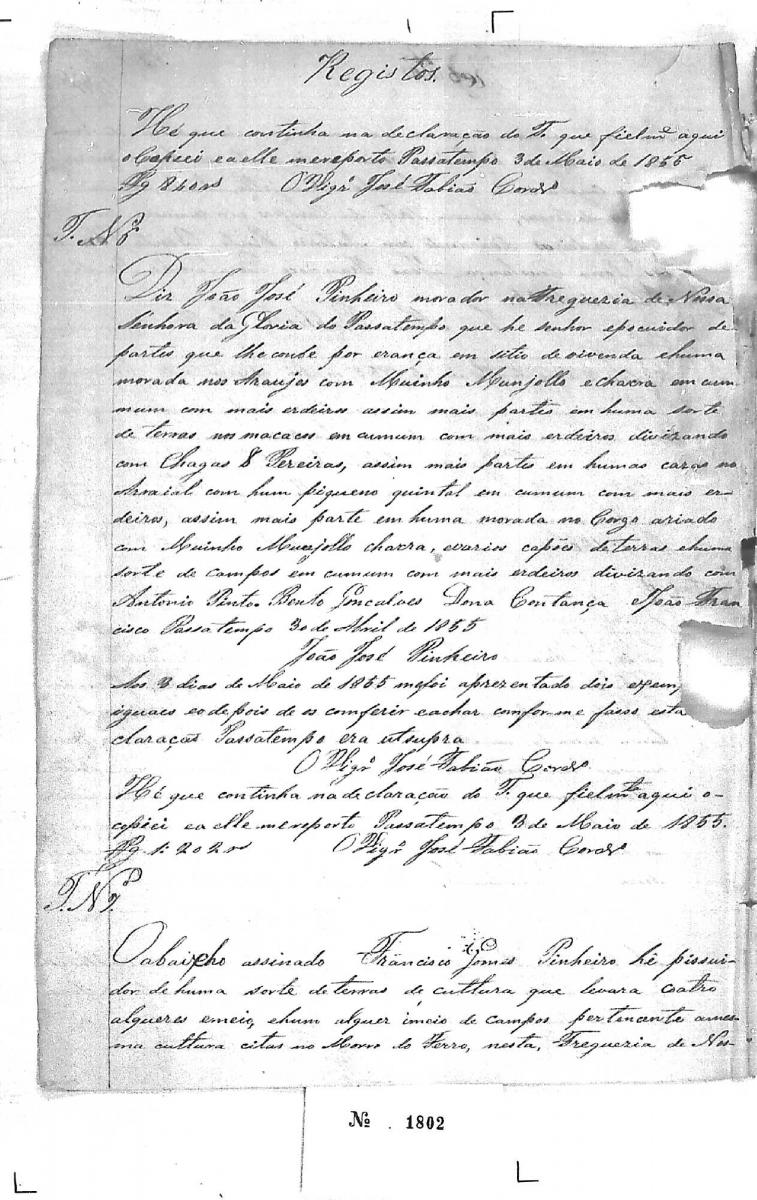 Registos.
Hé que continha na declaração do T. que fielmᵉ aqui
o Copiei e a elle me reporto Passatempo 3 de Maio de 1855
Pg 840 rs O Vigrº José Fabião Cordrº
T. Nº 6
Diz João José Pinheiro morador na Freguezia de Nossa
Senhora da Gloria do Passatempo que he senhor epscuidor de
partes que lhe conbe por erança em sitio de vivenda e huma
morada nos Araujos com Muinho Munjollo e chacra em cum
mum com mais erdeiros assim mais partes em huma sorte
de terras nos macacos em cumum com mais erdeiros divizando
com Chagas & Pereiras, assim mais partes em humas cazas no
Arraial com hum piqueno quintal em cumum com mais er-
deiros, assim mais parte em huma morada no Corgo ariado
com Muinho Mucjollo chacra, evarios capões de terras e huma
sorte de campos em cumum com mais erdeiros divizando com
Antonio Pinto. Bento Goncalves Dona Contança João Fran
cisco Passatempo 30 de Abril de 1855
João José Pinheiro
Aos 3 dias de Maio de 1855 me foi aprezentado dois exemp
iguaes eo depois de os comferir e achar comforme fasos esta
claração Passatempo era utsupra
O Vigrº José Fabião Cordrº
Hé que continha na declaração do T. que fielmte aqui o-
copiei e a elle me reporto Passatempo 3 de Maio de 1855.
Pg 1:202 rs O Vigrº José Fabião Cordrº
T. Nº 7.
O abaixho assinado Francisco Gomes Pinheiro hé pissui-
dor de huma sorte de terras de cultura que levara coatro
alqueres e meio, e hum alquer imeio de campos pertencente ames-
ma cultura citas no Morro do Ferro, nesta, Freguezia de Nos-
Nº 1802